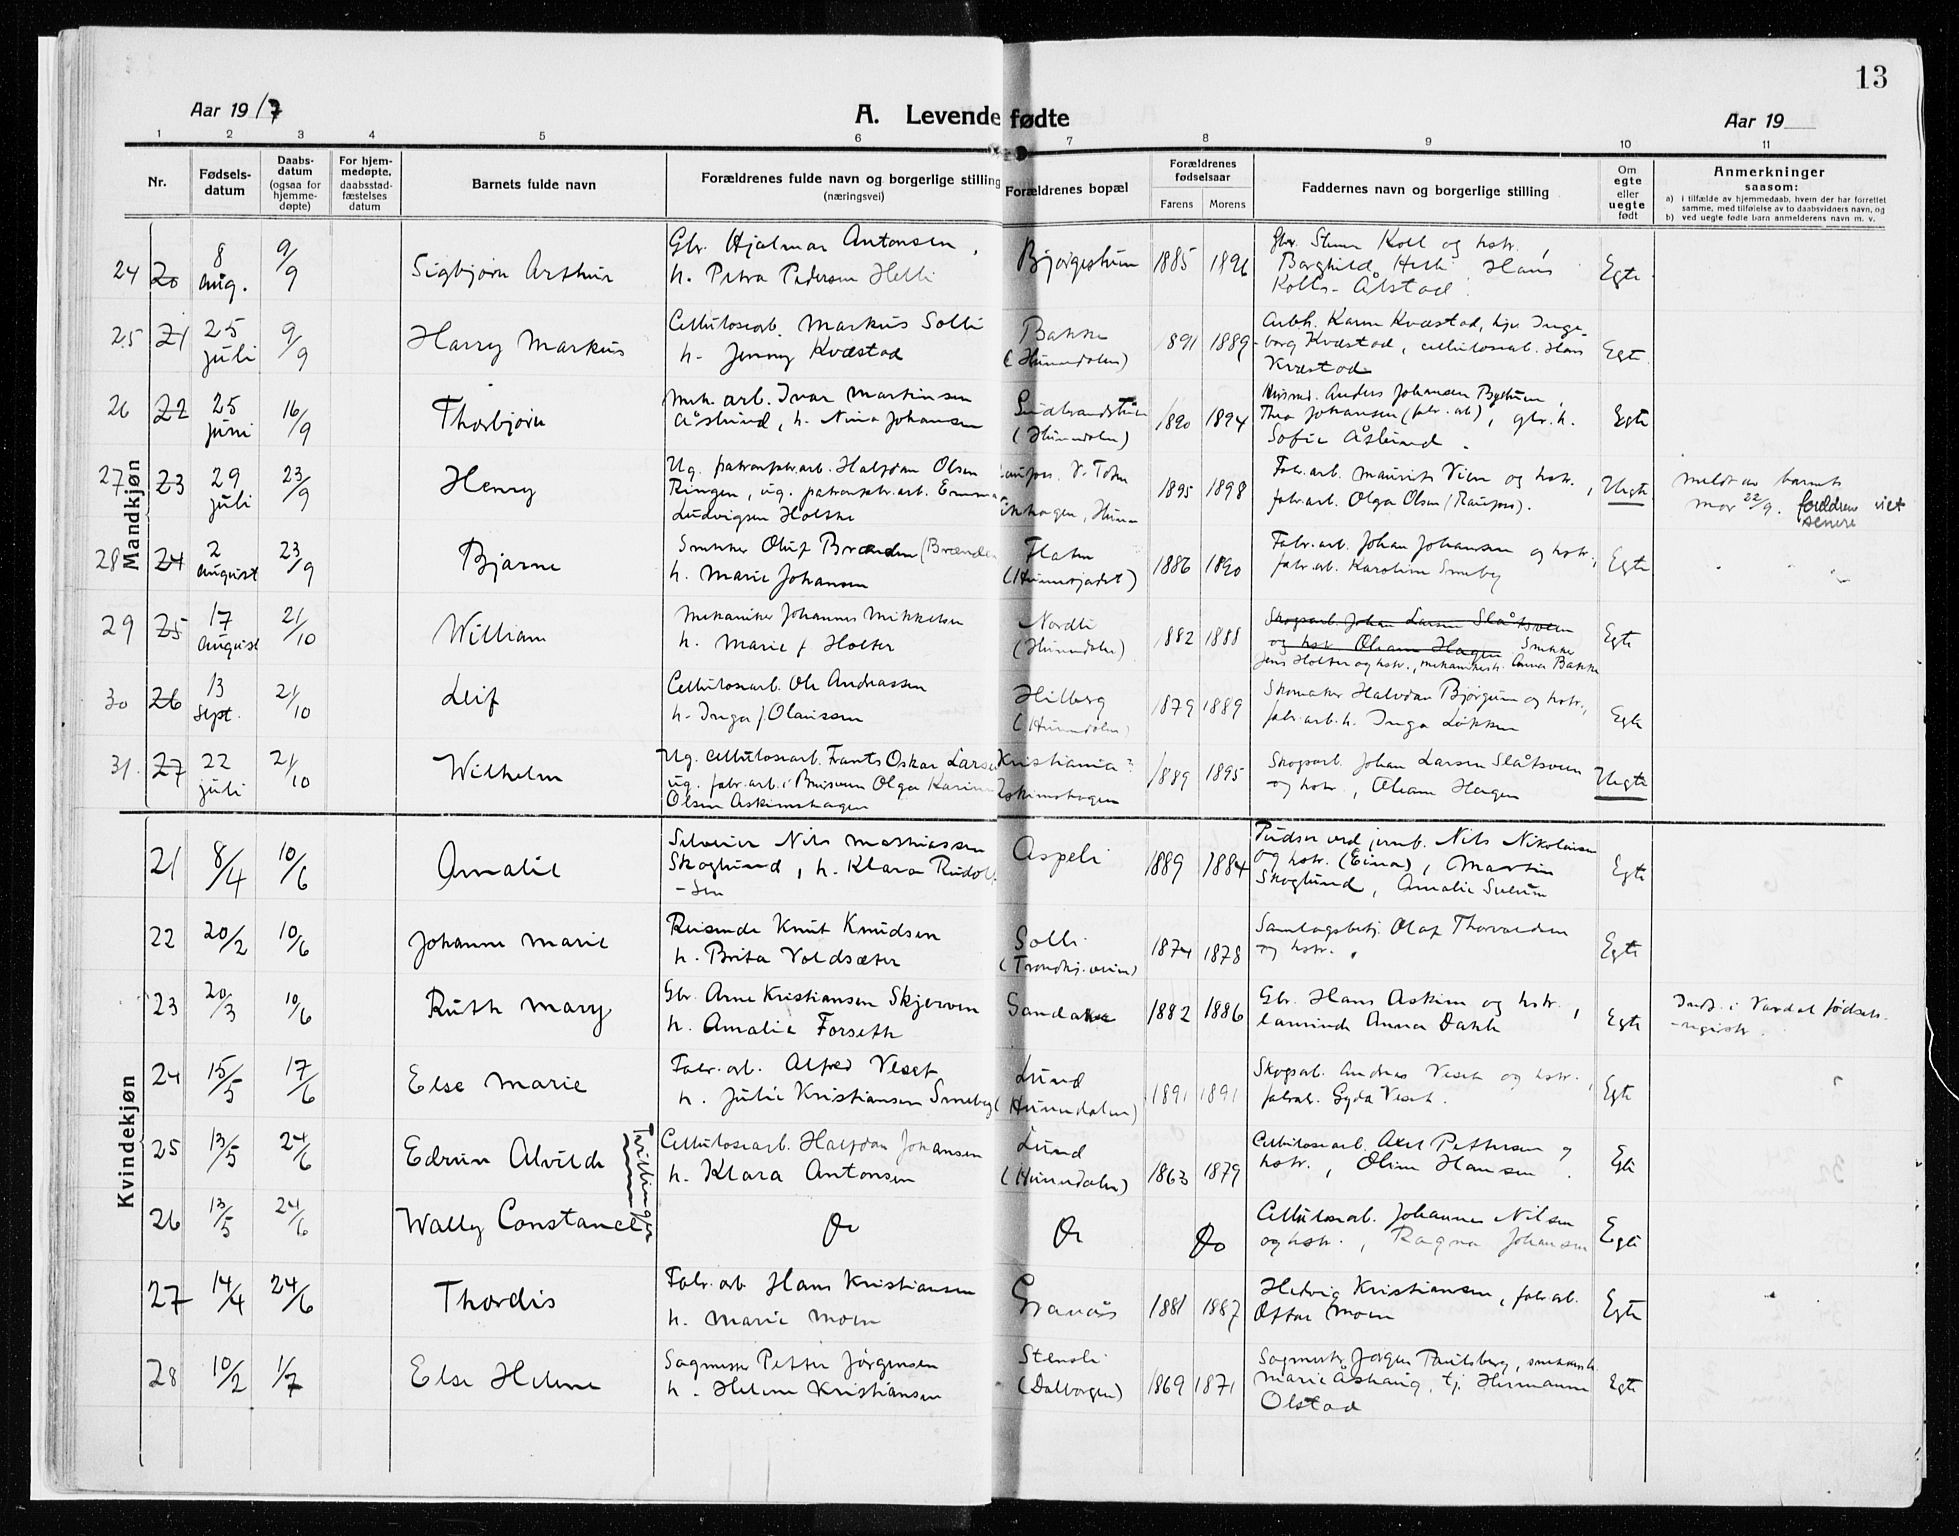 13
Aar 19 17
A. Levende fødte
Aar 19
1 2 3 4 5 6 7 8 9 10 11
Nr.
Fødsels-
datum
Daabs-
datum
(ogsaa for
hjemme-
døpte)
For hjem-
medøpte,
daabsstad-
fæstelses
datum
Barnets fulde navn
Forældrenes fulde navn og borgerlige stilling
(næringsvei)
Forældrenes bopæl
Forældrenes
fødselsaar
Farens Morens
Faddernes navn og borgerlige stilling
Om
egte
eller
uegte
født
Anmerkninger
saasom:
a) i tilfælde av hjemmedaab, hvem der har forrettet
samme, med tilføielse av to daabsvidners navn, og
b) ved uegte fødte barn anmelderens navn m. v.
Mandkjøn
24 20 8 Aug. 9/9 Sigbjørn Arthur
Gbr. Hjalmar Antonsen,
h. Petra Pedersen Helli
1885 1896
Gbr. Sture Koll og hstr.,
Borghild Helli, Hans
Kolls-Ålstad.
Egte
25 21 25 juli 9/9 Harry Markus
Cellulosearb. Markus Solli
h. Jenny Kvæstad
Bakke
(Hunndalen)
1891 1889
Arbh. Karen Kvæstad, hjv. Inge-
borg Kvæstad, cellulosearb. Hans
Kvæstad
Egte
26 22 25 juni 16/9 Thorbjørn
Mek. arb. Ivar Martinsen
Åslund, h. Nina Johansen
(Hunndalen)
1890 1894
Anders Johansen
Thea Johansen (fabr. arb), gbr. h.
Sofie Åslund.
Egte
27 23 29 juli 23/9 Henry
Ug. patronfabr.arb. Halfdan Olsen
Ringen, ug. patronfabr.arb. Emma
Ludvigsen Holske
Raufoss. V. Toten
1895 1898
Fabr.arb. Maurits Vien og hstr.,
fabr.arb. Olga Olsen (Raufoss).
Uegte
Meldt av barnets
mor 22/9. foreldrene viet
senere
28 24 2 august 23/9 Bjarne
Snekker Oluf Brænden (Brænden
h. Marie Johansen
Flaten
1886 1890
Fabr.arb. Johan Johansen og hstr.,
fabr.arb. Karoline Smeby
Egte
29 25 17 August 21/10 William
Mekaniker Johannes Mikkelsen
h. Marie f Holter
Nordli
(Hunndalen)
1882 1888
Skogsarb. Johan Larsen Slåtsveen
og hstr. Oleane Hagen Snekker
Jens Holter og hstr., mekanikerh. Anna Bakke
Egte
30 26 13 Sept. 21/10 Leif
Cellulosearb. Ole Andreassen
h. Inga f Olaussen
Hilberg
(Hunndalen)
1879 1889
Skomaker Halvdan Bjørgum og hstr.,
fabr.arb.h. Inga Løkken
Egte
31. 27 22 juli 21/10 Wilhelm
Ug. cellulosearb. Frants Oskar Larsen
ug. fabr.arb. i Olga Karine
Olsen Askimshagen
Kristiania?
Askimshagen
1889 1895
Skogsarb. Johan Larsen Slåtsveen
og hstr., Oleane Hagen
Uegte
Kvindekjøn
21 8/4 10/6 Amalie
Nils Mathiassen
Skoglund, h. Klara Rudolf
-sen
Aspeli
1889 1884
Pudser ved jernb. Nils Nikolaisen
og hstr. (Eina), Martin
Skoglund, Amalie
Egte
22 20/2 10/6 Johanne Marie
Reisende Knut Knudsen
h. Brita Voldsæter
Solli
(Trondhj. veien)
1874 1878
Samlagsbetj. Olaf Thorvaldsen
og hstr.
Egte
23 20/3 10/6 Ruth Mary
Gbr. Arne Kristiansen Skjerven
h. Amalie Forseth
1882 1886
Gbr. Hans Askim og hstr.,
Anna Dahle
Egte
Indf. i Vardal fødsels-
-registr.
24 15/5 17/6 Else Marie
Fabr.arb. Alfred Veset
h. Julie Kristiansen Smeby
Lund
(Hunndalen)
1891 1891
Skogsarb. Andreas Veset og hstr.,
fabrar. Gyda Veset.
Egte
25 13/5 24/6 Edrun Alvilde
Tvillinger
Cellulosearb. Halfdan Johansen
h. Klara Antonsen
Lund
(Hunndalen)
1863 1879
Cellulosearb. Axel Pettersen og
hstr., Oline Hansen.
Egte
26 13/5 24/6 Wally Constance
Do Do Do
Cellulosearb. Johannes Nilsen
og hstr., Ragna Johansen
Egte
27 14/4 24/6 Thordis
Fabr.arb Hans Kristiansen
h. Marie Moen
Granås
1881 1887
Hedvig Kristiansen, fabr.arb.
Ottar Moen
Egte
28 10/2 1/7 Else Helene
Sagmester Petter Jørgensen
h. Helene Kristiansen
Stensli
(Dalborgen)
1869 1871
Sagmestr. Jørgen Paulsberg, snekkerh.
Marie Åshaug, tj. Hermanne
Olstad
Egte